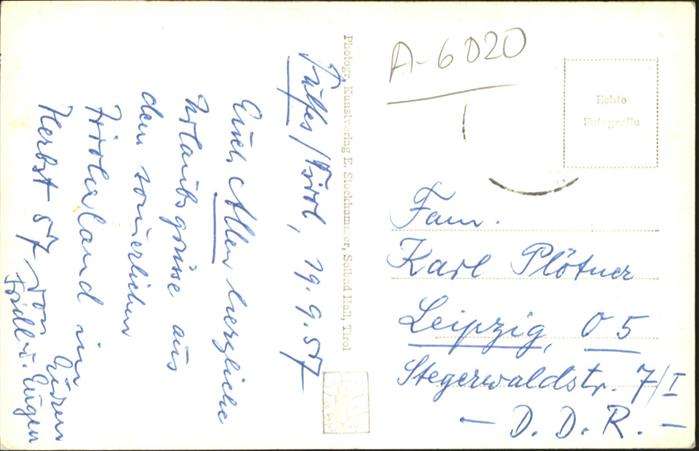 Tulfes/Tirol, 19.9.57
Euch Allen herzliche
Urlaubsgrüsse aus
dem
Tirolerland im
Herbst 57 von
Euren
Friedl u. Eugen
Photogr. Kunstverlag E. Stockhammer, Solbad Hall, Tirol
A-6020
Echte
Fotografie
Fam.
Karl Plötner
Leipzig, O 5
Stegerwaldstr. 7/I
- D. D. R. -